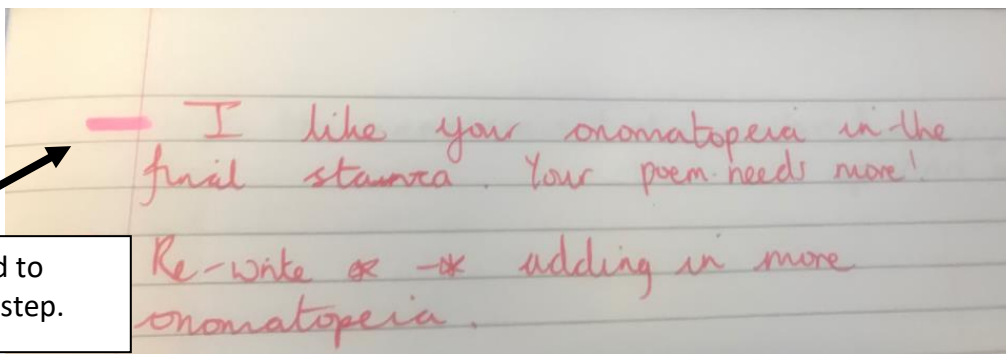 I like your onomatopeia in the
final stanza. Your poem needs more!
Re-write * - * adding in more
onomatopeia.
d to
step.